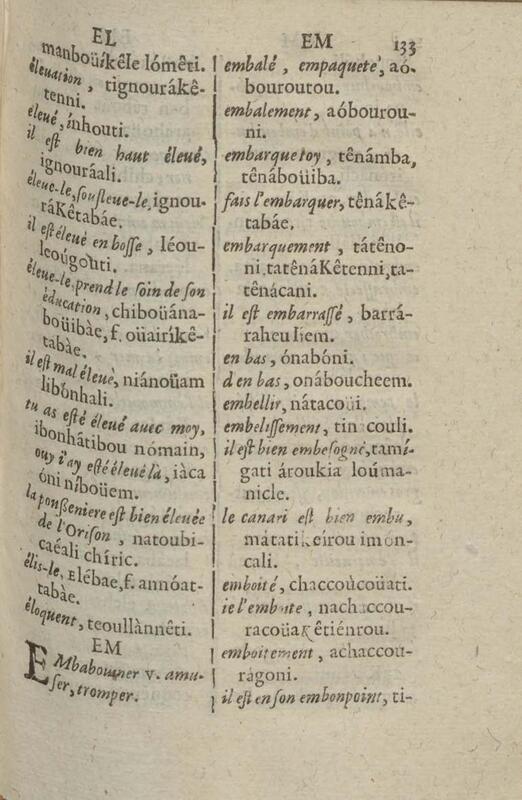 EL
manboüíkêle lómêti.
éleuation, tignourákê-
tenni.
eleué, ínhouti.
il est bien haut éleué,
ignouráali.
éleue-le, sousleue-le, ignou-
ráKêtabáe.
il est éleué en bosse, léou-
leoúgouti.
éleue-le, prend le soin de son
éducation, chiboüána-
boüibàe, f. oüairíkê-
tabàe.
il est mal éleuè, niánoüam
libónhali.
tu as esté éleué auec moy,
ibonhátibou nómain,
ouy i'ay esté éleué là, iàca
óni níboüem.
la pousseniere est bien éleuée
de l'Orison, natoubi-
caéali chíric.
élis-le, Elébae, f. annóat-
tabàe.
éloquent, teoullànnêti.
EM
EMbabouner v. amu-
ser, tromper.
EM 133
embalé, empaqueté, aó-
bouroutou.
embalement, aóbourou-
ni.
embarque toy, tênámba,
tênáboüiba.
fais l'embarquer, tênákê-
tabáe.
embarquement, tátêno-
ni, tatênáKêtenni, ta-
tênácani.
il est embarrassé, barrá-
raheu
en bas, ónabóni.
d en bas, onáboucheem.
embellir, nátacoüi.
embelissement, couli.
il est bien embesogné, tamí-
gatiároukia loúma-
nicle.
le canari est bien embu,
mátatikeírou imon-
cali.
emboité, chaccoùcoüati.
ie l'emboite, nachaccou-
racoüakêtiénrou.
emboitement, achaccou-
rágoni.
il est en son embonpoint, ti-